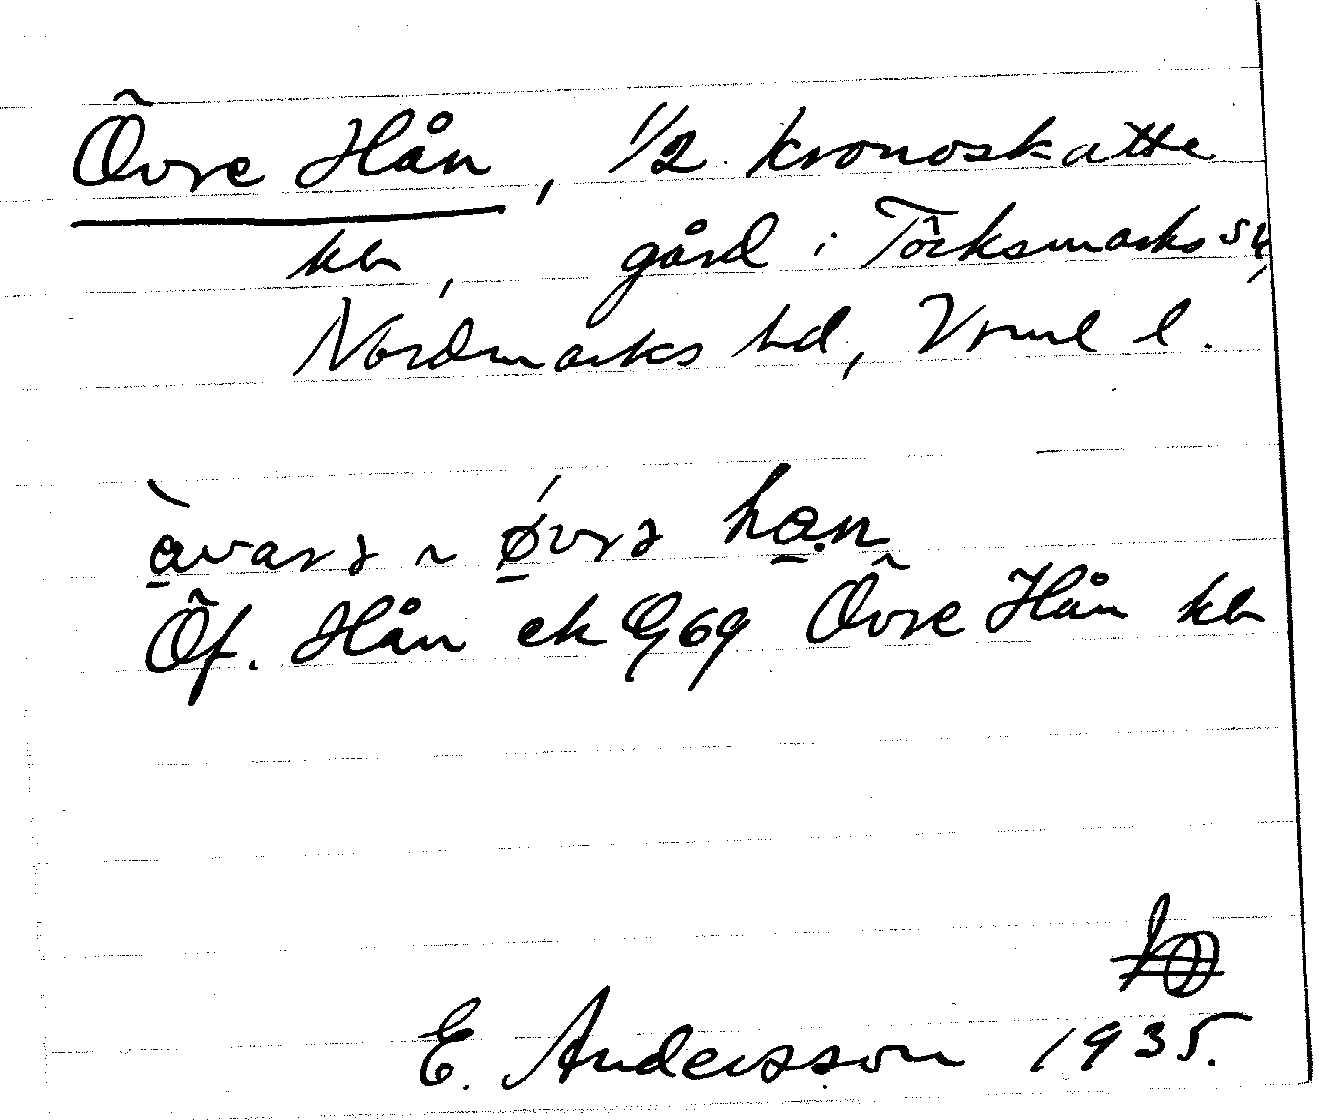 Övre Hån, 1/2 kronoskatte
kbr, gård i Töcksmarks sn,
Nordmarks hd, Vrml l.
Öf. Hån ek G69 Övre Hån kbr
E. Andersson 1935.